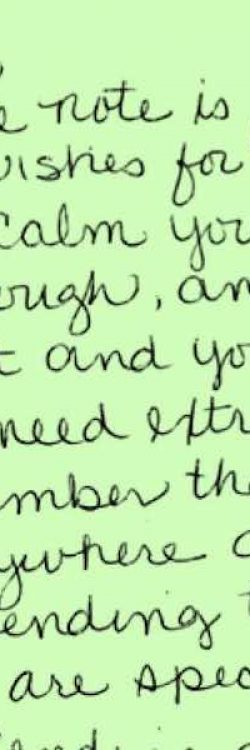 e note is
wishes for
calm you
ough, an
t and yo
need extr
mber th
ywhere
ending t
are spec